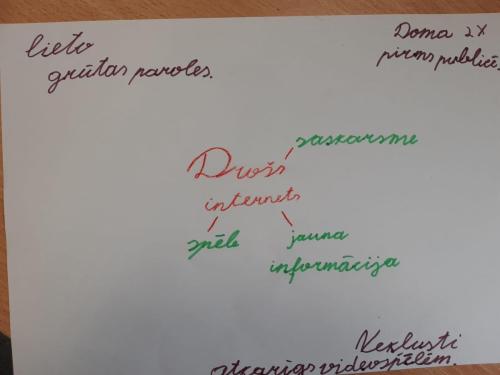 lieto
grūtas paroles.
Doma 2X
pirms publicē.
saskarsme
Drošs
internets
spēle
jauna
informācija
Nekļusti
atkarīgs videospēlēm.